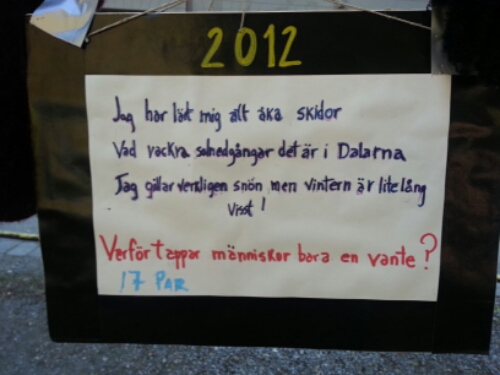 2012
Jag har lärt mig att åka skidor
Vad vackra solnedgångar det är i Dalarna
Jag gillar verkligen snön men vintern är lite lång
visst!
Varför tappar människor bara en vante?
17 PAR